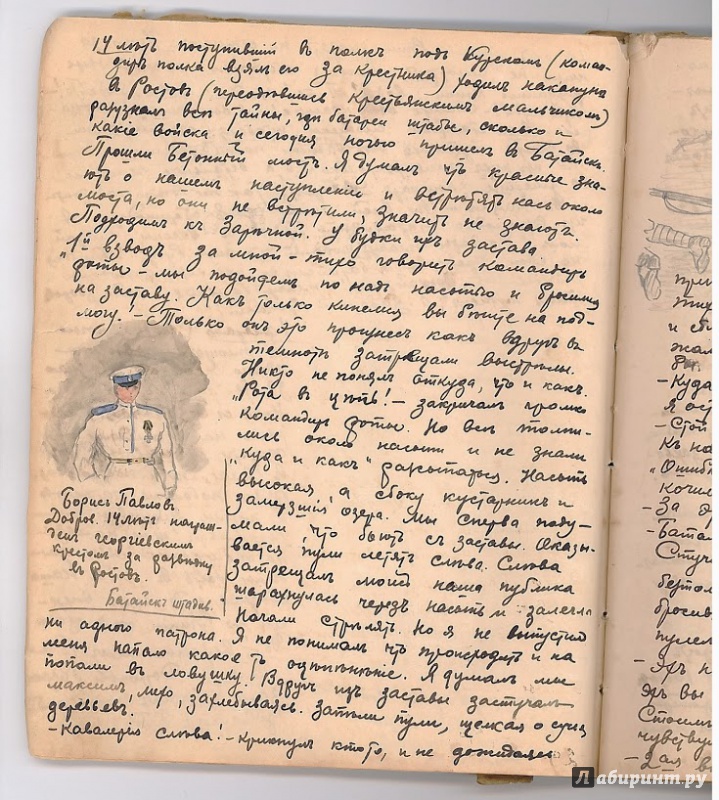 14 лѣтъ поступившій въ полкъ подъ Курскомъ (коман-
диръ полка взялъ его за крестника) ходилъ наканунѣ
въ Ростовъ (переодѣвшись крестьянскимъ мальчикомъ)
разузналъ всѣ тайны, гдѣ батареи штабы, сколько и
какіе войска и сегодня ночью пришелъ въ Батайскъ.
Прошли Бетонный мостъ. Я думалъ что красные зна-
ютъ о нашемъ наступленіи и встрѣтятъ насъ около
моста, но они не встрѣтили, значитъ не знаютъ.
Подходимъ къ Заречной. У будки ихъ застава.
„1й взводъ за мной – тихо говоритъ командиръ
роты – мы подойдемъ по надъ насыпью и бросимся
на заставу. Какъ только кинемся вы бѣгите на под-
могу! – Только онъ это произнесъ какъ вдругъ въ
темнотѣ затрещали выстрѣлы.
Никто не понялъ откуда, что и какъ.
„Рота въ цѣпь! – закричалъ громко
командиръ роты. Но всѣ толпи-
лись около насыпи и не знали
„куда и какъ" разсыпаться. Насыпь
высокая, а сбоку кустарникъ и
замерзшія озера. Мы сперва поду-
мали что бьютъ съ заставы. Оказы-
вается пули летятъ слѣва. Слѣва
затрещалъ наша публика
шарахнулась черезъ насыпь и залегла
Начали стрѣлять. Но я не выпустилъ
ни одного патрона. Я не понималъ что происходитъ и на
меня напало какое то оцѣпенѣніе. Я думалъ мы
попали въ ловушку. Вдругъ изъ заставы застучалъ
максимъ, захлебываясь. Запѣли пули, щелкая о сучья
деревьевъ.
– Кавалерія слѣва! – крикнулъ кто то, и не дожидаясь
Борисъ Павловъ
Добров. 14 лѣтъ награж-
денъ георгіевскимъ
крестомъ за развѣдку
въ Ростовъ.
Батайскъ
при
и сб
жал
– Куда
я ост
– Стой
къ на
„Ошиб
кочи
– За
– Бата
Стуч
бросив
пулем
– Эръ н
эръ вы
Стоим
чувству
– 2ая
Лабиринт.ру